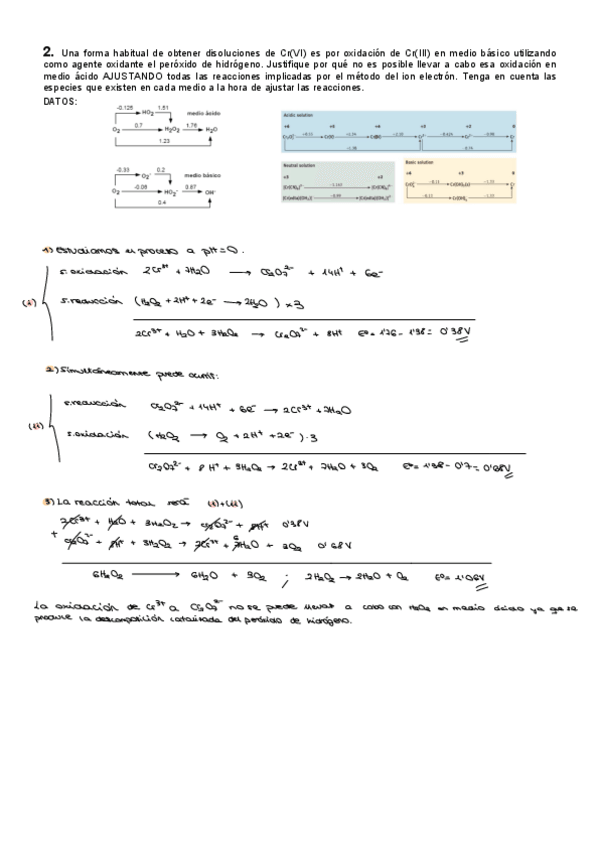 2. Una forma habitual de obtener disoluciones de Cr(VI) es por oxidación de Cr(III) en medio básico utilizando
como agente oxidante el peróxido de hidrógeno. Justifique por qué no es posible llevar a cabo esa oxidación en
medio ácido AJUSTANDO todas las reacciones implicadas por el método del ion electrón. Tenga en cuenta las
especies que existen en cada medio a la hora de ajustar las reacciones.
DATOS:
-0.125 HO₂ 1.51 medio ácido
O₂ 0.7 H₂O₂ 1.76 H₂O
1.23
-0.33 O₂⁻ 0.2 medio básico
O₂ -0.08 HO₂⁻ 0.87 OH⁻
0.4
Acidic solution
Neutral solution
Basic solution
1) Estudiamos el proceso a pH=0.
s.oxidación 2Cr³⁺ + 7H₂O → Cr₂O₇²⁻ + 14H⁺ + 6e⁻
(i) s.reducción (H₂O₂ + 2H⁺ + 2e⁻ → 2H₂O) × 3
2Cr³⁺ + H₂O + 3H₂O₂ → Cr₂O₇²⁻ + 8H⁺ E⁰= 1'76 - 1'38 = 0'38V
2) Simultáneamente puede ocurrir:
s.reducción Cr₂O₇²⁻ + 14H⁺ + 6e⁻ → 2Cr³⁺ + 7H₂O
(ii) s.oxidación (H₂O₂ → O₂ + 2H⁺ + 2e⁻)·3
Cr₂O₇²⁻ + 8H⁺ + 3H₂O₂ → 2Cr³⁺ + 7H₂O + 3O₂ E⁰= 1'38 - 0'7 = 0'68V
3) La reacción total será (i)+(ii)
2Cr³⁺ + H₂O + 3H₂O₂ → Cr₂O₇²⁻ + 8H⁺ 0'38V
+ Cr₂O₇²⁻ + 8H⁺ + 3H₂O₂ → 2Cr³⁺ + 7H₂O + 3O₂ 0'68V
6H₂O₂ → 6H₂O + 3O₂ ; 2H₂O₂ → 2H₂O + O₂ E⁰= 1'06V
La oxidación de Cr³⁺ a Cr₂O₇²⁻ no se puede llevar a cabo con H₂O₂ en medio ácido ya que se
produce la descomposición catalizada del peróxido de hidrógeno.